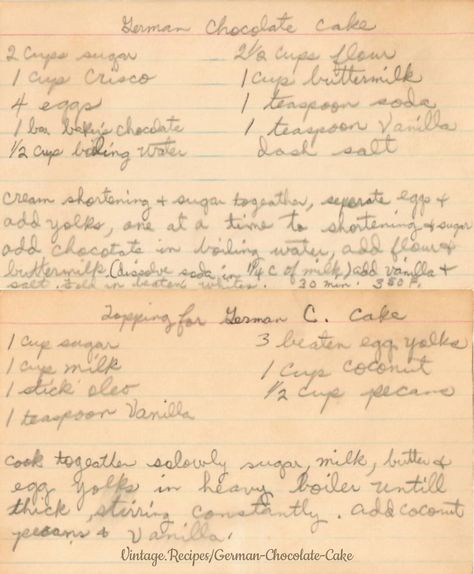 German Chocolate Cake
2 cups sugar 2 1/2 cups flour
1 cup Crisco 1 cup buttermilk
4 eggs 1 teaspoon soda
1 bar baker's chocolate 1 teaspoon Vanilla
1/2 cup boiling water dash salt
Cream shortening & sugar togeather, seperate eggs &
add yolks, one at a time to shortening & sugar
add chocotate in boiling water, add flour &
buttermilk (dissolve soda in 1/4 C of milk) add vanilla &
salt. fold in beaten whites. 30 min. 350 F.
Topping for German C. Cake
1 cup sugar 3 beaten egg yolks
1 cup milk 1 cup coconut
1 stick oleo 1/2 cup pecans
1 teaspoon Vanilla
cook togeather solowly sugar, milk, butter &
egg yolks in heavy boiler untill
thick, stirring constantly. add coconut
pecans & Vanilla.
Vintage.Recipes/German-Chocolate-Cake